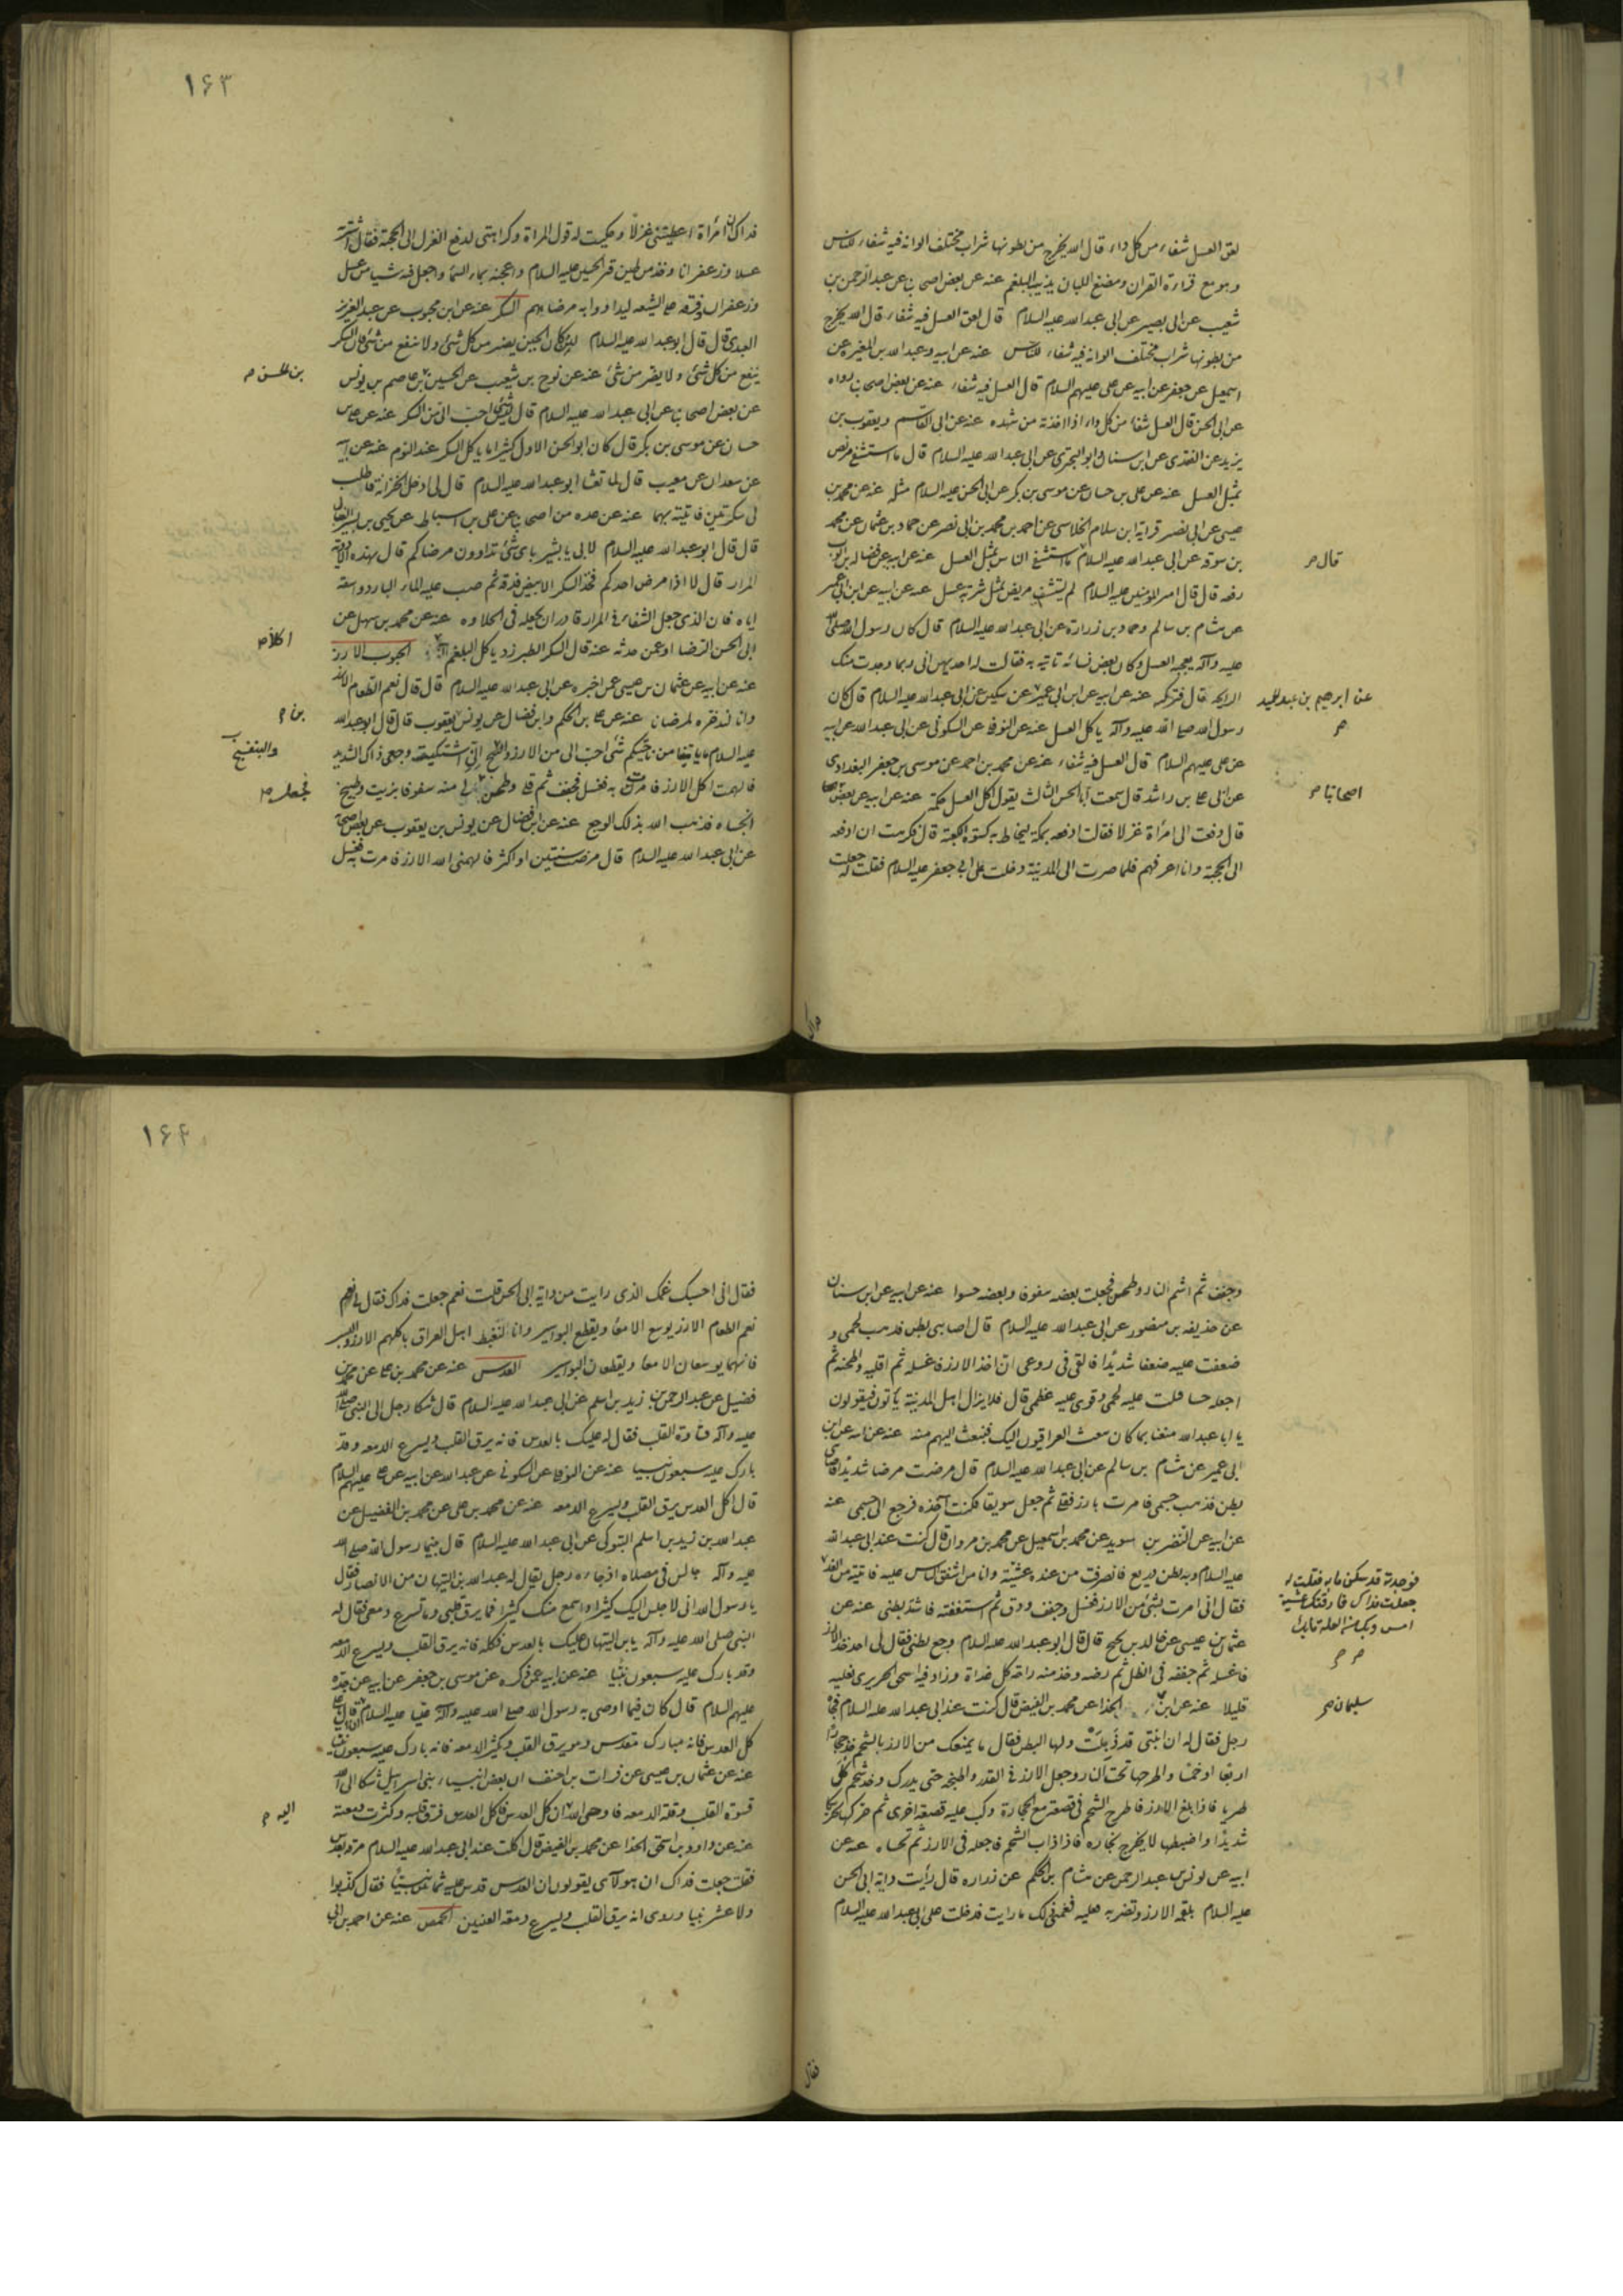 لعق العسل شفاء من كل داء قال الله يخرج من بطونها شراب مختلف الوانه فيه شفاء للناس
وهو مع قراءة القران ومضغ اللبان يذيب البلغم عنه عن بعض اصحابنا عن عبد الرحمن بن
شعيب عن ابى بصير عن ابى عبد الله عليه السلام قال لعق العسل فيه شفاء قال الله يخرج
من بطونها شراب مختلف الوانه فيه شفاء للناس عنه عن ابيه وعبد الله بن المغيرة عن
اسمعيل عن جعفر عن ابيه عن على عليهم السلام قال العسل فيه شفاء عنه عن بعض اصحابنا رواه
عن ابى الحسن قال العسل شفاء من كل داء اذا اخذته من شهده عنه عن ابى القاسم ويعقوب بن
يزيد عن القندى عن ابن سنان وابو البخترى عن ابى عبد الله عليه السلام قال ما استشفى مريض
بمثل العسل عنه عن على بن حسان عن موسى بن بكر عن ابى الحسن عليه السلام مثله عنه عن محمد بن
عيسى عن ابى نصر قرابة ابن سلام الخلاسى عن احمد بن محمد بن ابى نصر عن حماد بن عثمان عن محمد
بن سوقه عن ابى عبد الله عليه السلام ما استشفى الناس بمثل العسل عنه عن ابيه عن فضاله بن ايوب
قال م
رفعه قال قال امير المؤمنين عليه السلام لم يستشف مريض بمثل شربة عسل عنه عن ابيه عن ابن ابى عمير
عن هشام بن سالم وحماد بن زرارة عن ابى عبد الله عليه السلام قال كان رسول الله صلى الله
عليه وآله يعجبه العسل وكان بعض نسائه تاتيه به فقالت له احديهن انى ربما وجدت منك
الرايحه قال فتركه عنه عن ابيه عن ابن ابى عمير عن سكين عن ابى عبد الله عليه السلام قال كان
عن ابرهيم بن عبد الحميد م
رسول الله صلى الله عليه وآله ياكل العسل عنه عن النوفلى عن السكونى عن ابى عبد الله عن ابيه
عن على عليهم السلام قال العسل فيه شفاء عنه عن محمد بن احمد عن موسى بن جعفر البغدادى
عن ابى على بن راشد قال سمعت أبا الحسن الثالث يقول اكل العسل حكمة عنه عن ابيه عن بعض
اصحابنا م
قال دفعت الى امرأة غزلا فقالت ادفعه بمكة ليخاط به كسوة الكعبة قال فكرهت ان ادفعه
الى الحجبة وانا اعرفهم فلما صرت الى المدينة دخلت على ابى جعفر عليه السلام فقلت له جعلت
فداك
١٦٣
فداك ان امرأة اعطيتنى غزلا وحكيت له قول المراة وكراهتى لدفع الغزل الى الحجبة فقال اشتر
عسلا وزعفرانا وخذ من طين قبر الحسين عليه السلام واعجنه بماء السماء واجعل فيه شيئا من عسل
وزعفران وفرقه على الشيعه ليداووا به مرضاهم السكر عنه عن ابن محبوب عن عبد العزيز
العبدى قال قال ابو عبد الله عليه السلام لئن كان الجبن يضر من كل شئ ولا ينفع من شئ فان السكر
ينفع من كل شئ ولا يضر من شئ عنه عن نوح بن شعيب عن الحسين بن عاصم بن يونس
بن الحسن م
عن بعض اصحابنا عن ابى عبد الله عليه السلام قال ليس شئ احب الى من السكر عنه عن على بن
حسان عن موسى بن بكر قال كان ابو الحسن الاول كثيرا ما ياكل السكر عند النوم عنه عن ابيه
عن سعدان عن معتب قال لما تعشا ابو عبد الله عليه السلام قال لى ادخل الخزانة فاطلب
لى سكرتين فاتيته بهما عنه عن عده من اصحابنا عن على بن اسباط عن يحيى بن بشير النبال
قال قال ابو عبد الله عليه السلام لابى يا بشير باى شئ تداوون مرضاكم قال بهذه الادوية
المرار قال لا اذا مرض احدكم فخذ السكر الابيض فدقه ثم صب عليه الماء البارد واسقه
اياه فان الذى جعل الشفاء فى المرار قادر ان يجعله فى الحلاوه عنه عن محمد بن سهل عن
ابى الحسن الرضا او عمن حدثه عنه قال السكر الطبرزد ياكل البلغم الحبوب الارز
اكلا م
عنه عن ابيه عن عثمان بن عيسى عمن اخبره عن ابى عبد الله عليه السلام قال قال نعم الطعام الارز
وانا لندخره لمرضانا عنه عن على بن الحكم وابن فضال عن يونس يعقوب قال قال ابو عبد الله
بن م
عليه السلام ما ياتينا من ناحيتكم شئ احب الى من الارز والبنفسج انى اشتكيت وجعى ذاك الشديد
والبنفسج
فالهمت اكل الارز فامرت به فغسل فجفف ثم قلى وطحن لى منه سفوفا بزيت وطبيخ
فجعل م
اتحساه فذهب الله بذلك الوجع عنه عن ابن فضال عن يونس بن يعقوب عن بعض اصحابنا
عن ابى عبد الله عليه السلام قال مرضت سنتين او اكثر فالهمنى الله الارز فامرت به فغسل
وجفف ثم اشم النار وطحن فجعلت بعضه سفوفا وبعضه حسوا عنه عن ابيه عن ابن سنان
عن حذيفه بن منصور عن ابى عبد الله عليه السلام قال اصابنى بطن فذهب لحمى و
ضعفت عليه ضعفا شديدا فالقى فى روعى ان اخذ الارز فاغسله ثم اقليه واطحنه ثم
اجعله حسا فنبت عليه لحمى وقوى عليه عظمى قال فلا يزال اهل المدينة ياتون فيقولون
يا ابا عبد الله متعنا بما كان يبعث العراقيون اليك فنبعث اليهم منه عنه عن ابيه عن ابن
ابى عمير عن هشام بن سالم عن ابى عبد الله عليه السلام قال مرضت مرضا شديدا فاصابنى
بطن فذهب جسمى فامرت بارز فقلى ثم جعل سويقا فكنت آخذه فرجع الى جسمى عنه
عن ابيه عن النضر بن سويد عن محمد بن اسمعيل عن محمد بن مروان قال كنت عند ابى عبد الله
عليه السلام وبه بطن ذريع فانصرفت من عنده عشية وانا من اشفق الناس عليه فاتيته من الغد
فوجدته قد سكن ما به فقلت له
جعلت فداك فارقتك عشية
امس وبك من العلة ما بك
م م
فقال انى امرت بشئ من الارز فغسل وجفف ودق ثم استففته فاشتد بطنى عنه عن
عثمان بن عيسى عن خالد بن نجيح قال قال ابو عبد الله عليه السلام وجع بطنى فقال لى احد خذ الارز
فاغسله ثم جففه فى الظل ثم رضه وخذ منه راحة كل غداة وزاد فيه اسحق الجريرى تقليه
قليلا عنه عن ابن الحذا عن محمد بن الفيض قال كنت عند ابى عبد الله عليه السلام فجاءه
سليمان م
رجل فقال له ان ابنتى قد ذبلت وبها البطن فقال ما يمنعك من الارز بالشحم خذ حجارا
اربعا او خمسا واطرحها تحت النار وجعل الارز فى القدر واطبخه حتى يدرك وخذ شحم كلى
طريا فاذا بلغ الارز فاطرح الشحم فى قصعة مع الحجارة وكب عليه قصعة اخرى ثم حركها تحريكا
شديدا واضبطها لا يخرج بخاره فاذا ذاب الشحم فاجعله فى الارز ثم تحساه عنه عن
ابيه عن يونس بن عبد الرحمن عن هشام بن الحكم عن زراره قال رأيت داية ابى الحسن
عليه السلام تلقمه الارز وتضربه عليه فغمنى ذلك ما رايت فدخلت على ابى عبد الله عليه السلام
فقال
١٦٤
فقال انى احسبك غمك الذى رايت من داية ابى الحسن قلت نعم جعلت فداك فقال لى نعم
نعم الطعام الارز يوسع الامعا ويقطع البواسير وانا لنغبط اهل العراق باكلهم الارز والبسر
فانهما يوسعان الامعا ويقطعان البواسير العدس عنه عن محمد بن على عن محمد بن
فضيل عن عبد الرحمن بن زيد بن اسلم عن ابى عبد الله عليه السلام قال شكا رجل الى النبى صلى الله
عليه وآله قساوة القلب فقال له عليك بالعدس فانه يرق القلب ويسرع الدمعه وقد
بارك عليه سبعون نبيا عنه عن النوفلى عن السكونى عن عبد الله عن ابيه عن على عليهم السلام
قال اكل العدس يرق القلب ويسرع الدمعه عنه عن محمد بن على عن محمد بن الفضيل عن
عبد الله بن زيد بن اسلم التبوكى عن ابى عبد الله عليه السلام قال بينما رسول الله صلى الله
عليه وآله جالس فى مصلاه اذ جاءه رجل يقال له عبد الله بن التيهان من الانصار فقال
يا رسول الله انى لاجلس اليك كثيرا واسمع منك كثيرا فما يرق قلبى وما تسرع دمعى فقال له
النبى صلى الله عليه وآله يابن التيهان عليك بالعدس فكله فانه يرق القلب ويسرع الدمعه
وقد بارك عليه سبعون نبيا عنه عن ابيه عمن ذكره عن موسى بن جعفر عن ابيه عن جده
عليهم السلام قال كان فيما اوصى به رسول الله صلى الله عليه وآله عليا عليه السلام ان قال يا على
كل العدس فانه مبارك مقدس وهو يرق القلب ويكثر الدمعه فانه بارك عليه سبعون نبيا
عنه عن عثمان بن عيسى عن فرات بن احنف ان بعض انبياء بنى اسرايل شكا الى الله
قسوة القلب وقلة الدمعه فاوحى الله ان كل العدس فاكل العدس فرق قلبه وكثرت دمعته
اليه م
عنه عن داود بن اسحق الحذا عن محمد بن الفيض قال اكلت عند ابى عبد الله عليه السلام مرقة بعدس
فقلت جعلت فداك ان هولآء يقولون ان العدس قدس عليه ثمانون نبيا فقال كذبوا
ولا عشرين نبيا وروى انه يرق القلب ويسرع دمعة العينين الحمص عنه عن احمد بن ابى